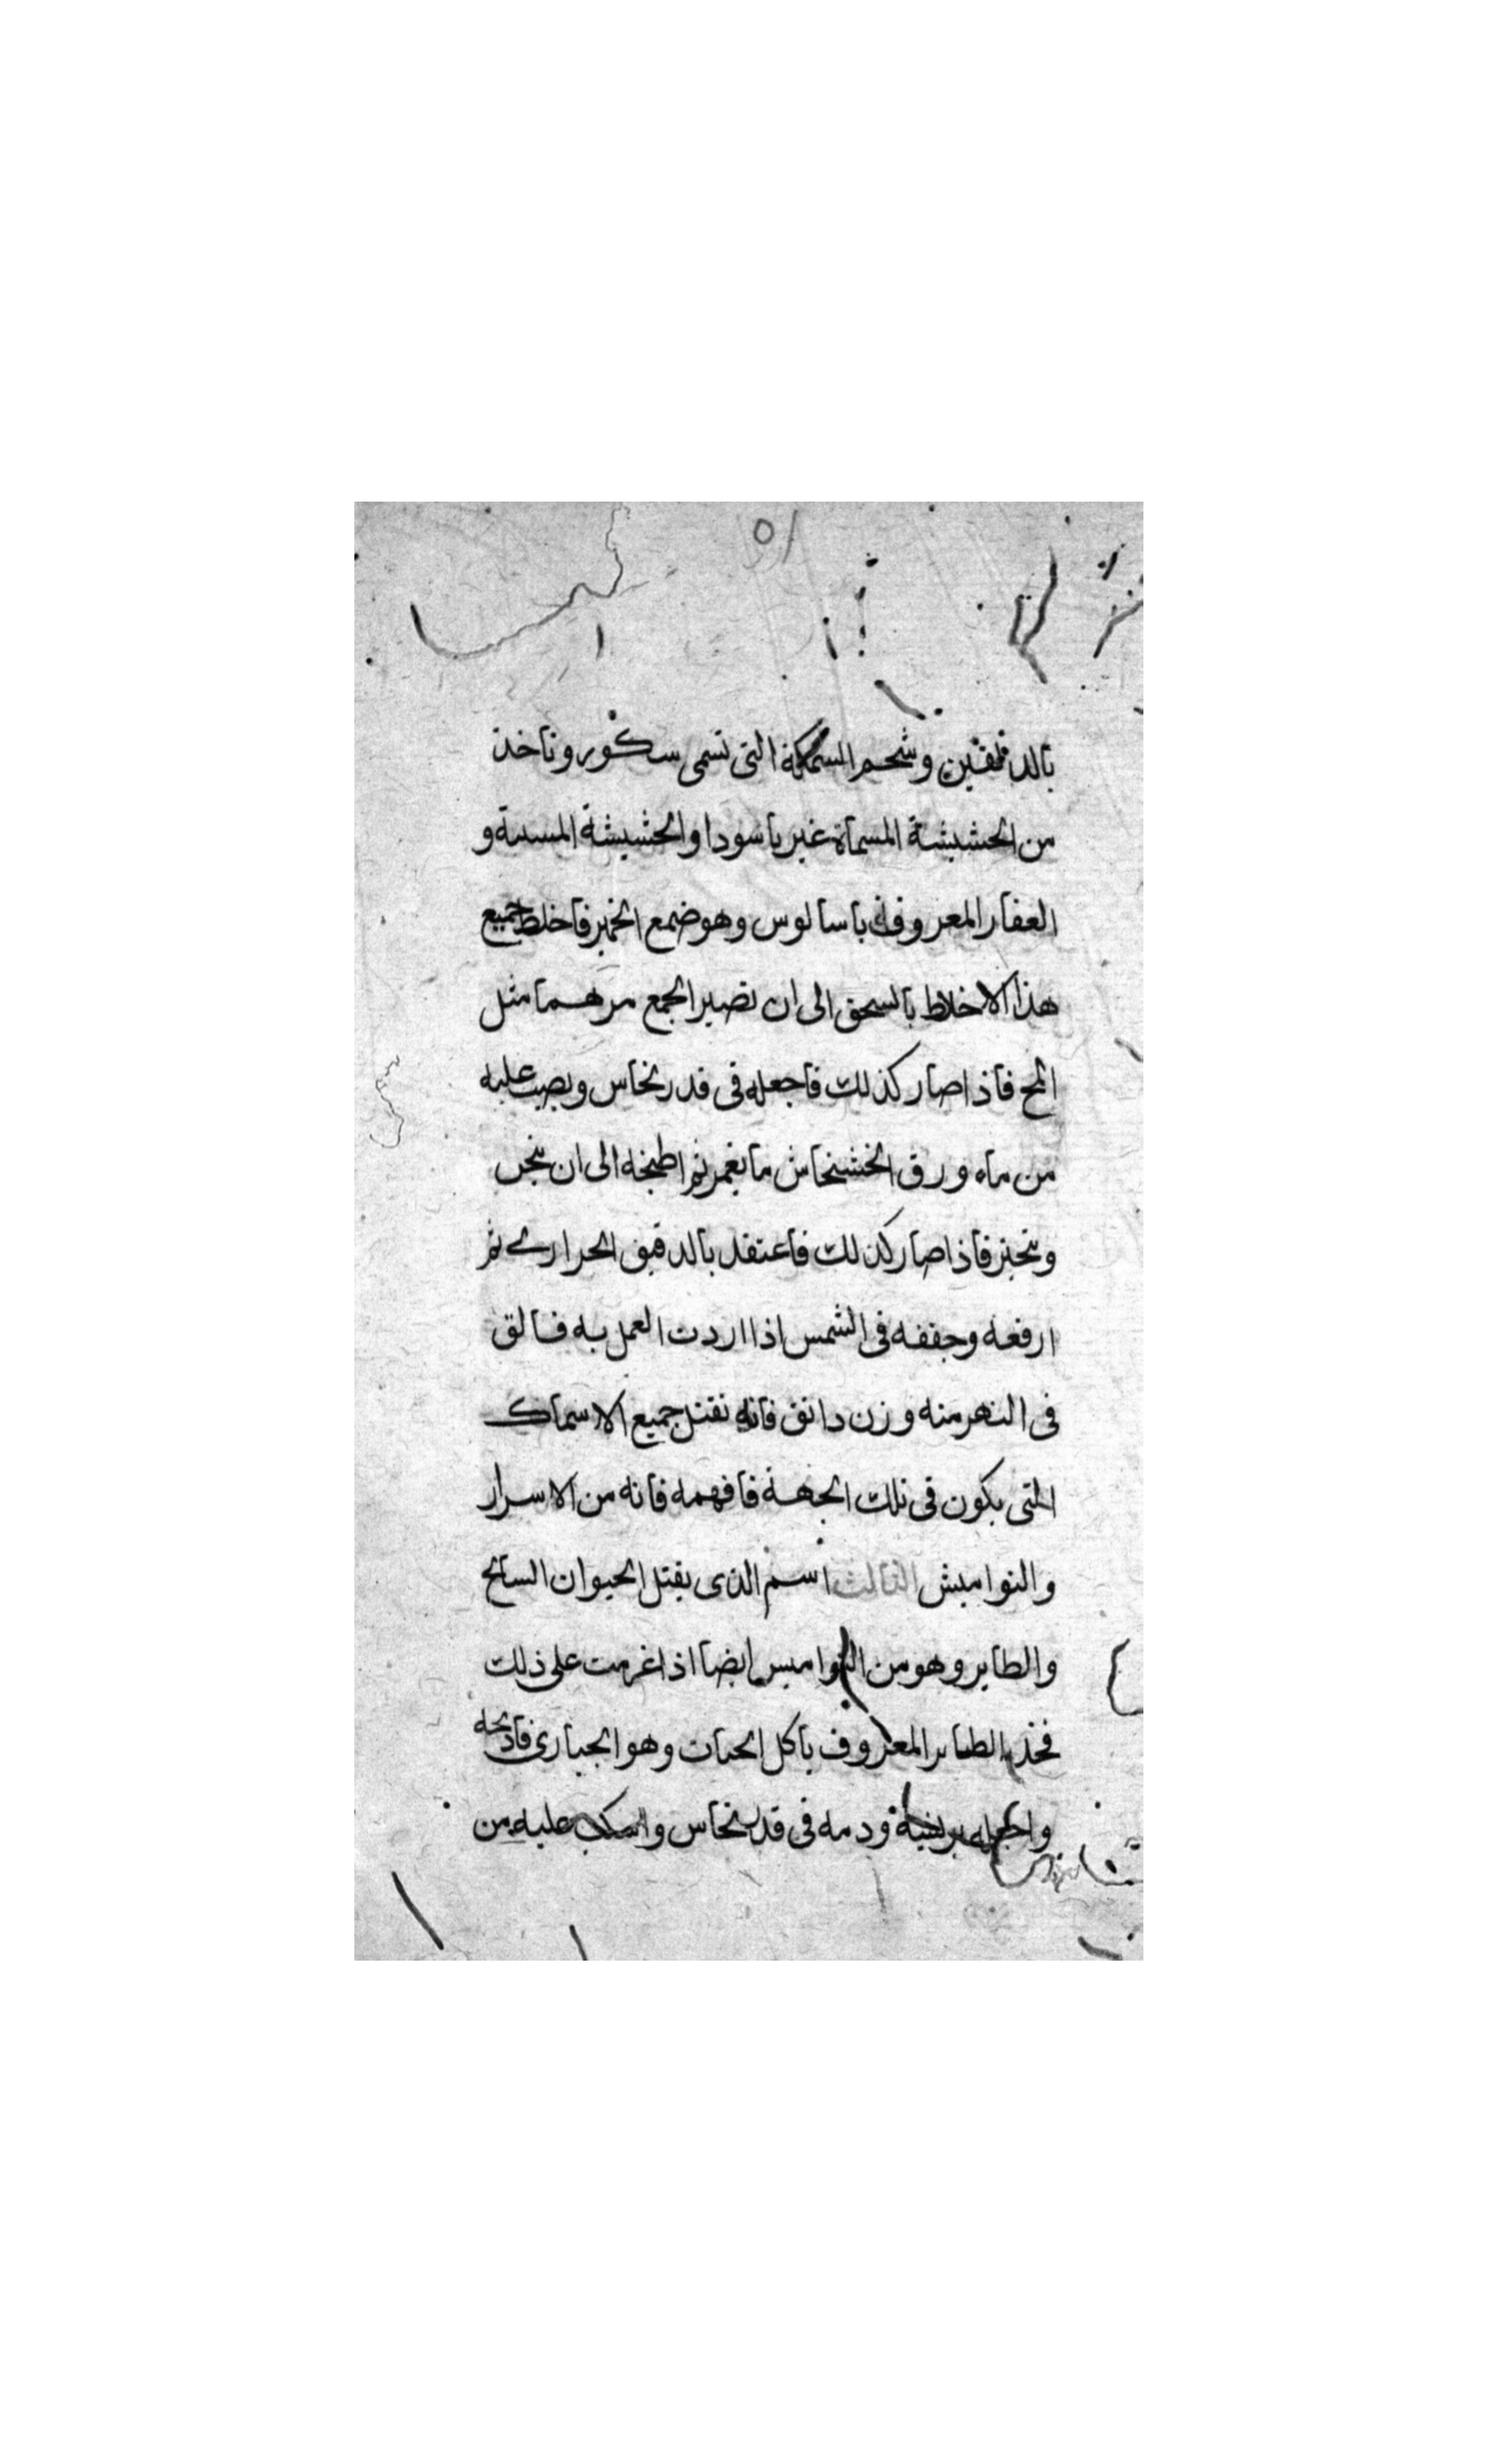 ٥١
بالدلفين وشحم السمكة التى تسمى سكور وناخذ
من الحشيشة المسماة غير باسودا والحشيشة المسة و
العقار المعروف باسالوس وهو ضمع الخمير فاخلط جميع
هذا الاخلاط بالسحق الى ان تصير الجمع مرهما مثل
المخ فاذا صار كذلك فاجعله فى قدر نحاس ويصب عليه
من ماء ورق الخشخاش ما يغمر ثم اطبخه الى ان
فاذا صار كذلك فاعتقد بالدقيق الحرارى ثم
ارفعه وجففه فى الشمس اذا اردت العمل به فالق
فى النهر منه وزن دانق فانه تقتل جميع الاسماك
التى يكون فى تلك الجهة فافهمه فانه من الاسرار
والنواميش الثالث اسم الذى يقتل الحيوان السائح
والطاير وهو من النواميس ايضا اذا غرمت على ذلك
فخذ الطاير المعروف باكل الحيات وهو الجبارى فاذبحه
واجعله ودمه فى قدر نحاس واسكب عليه من